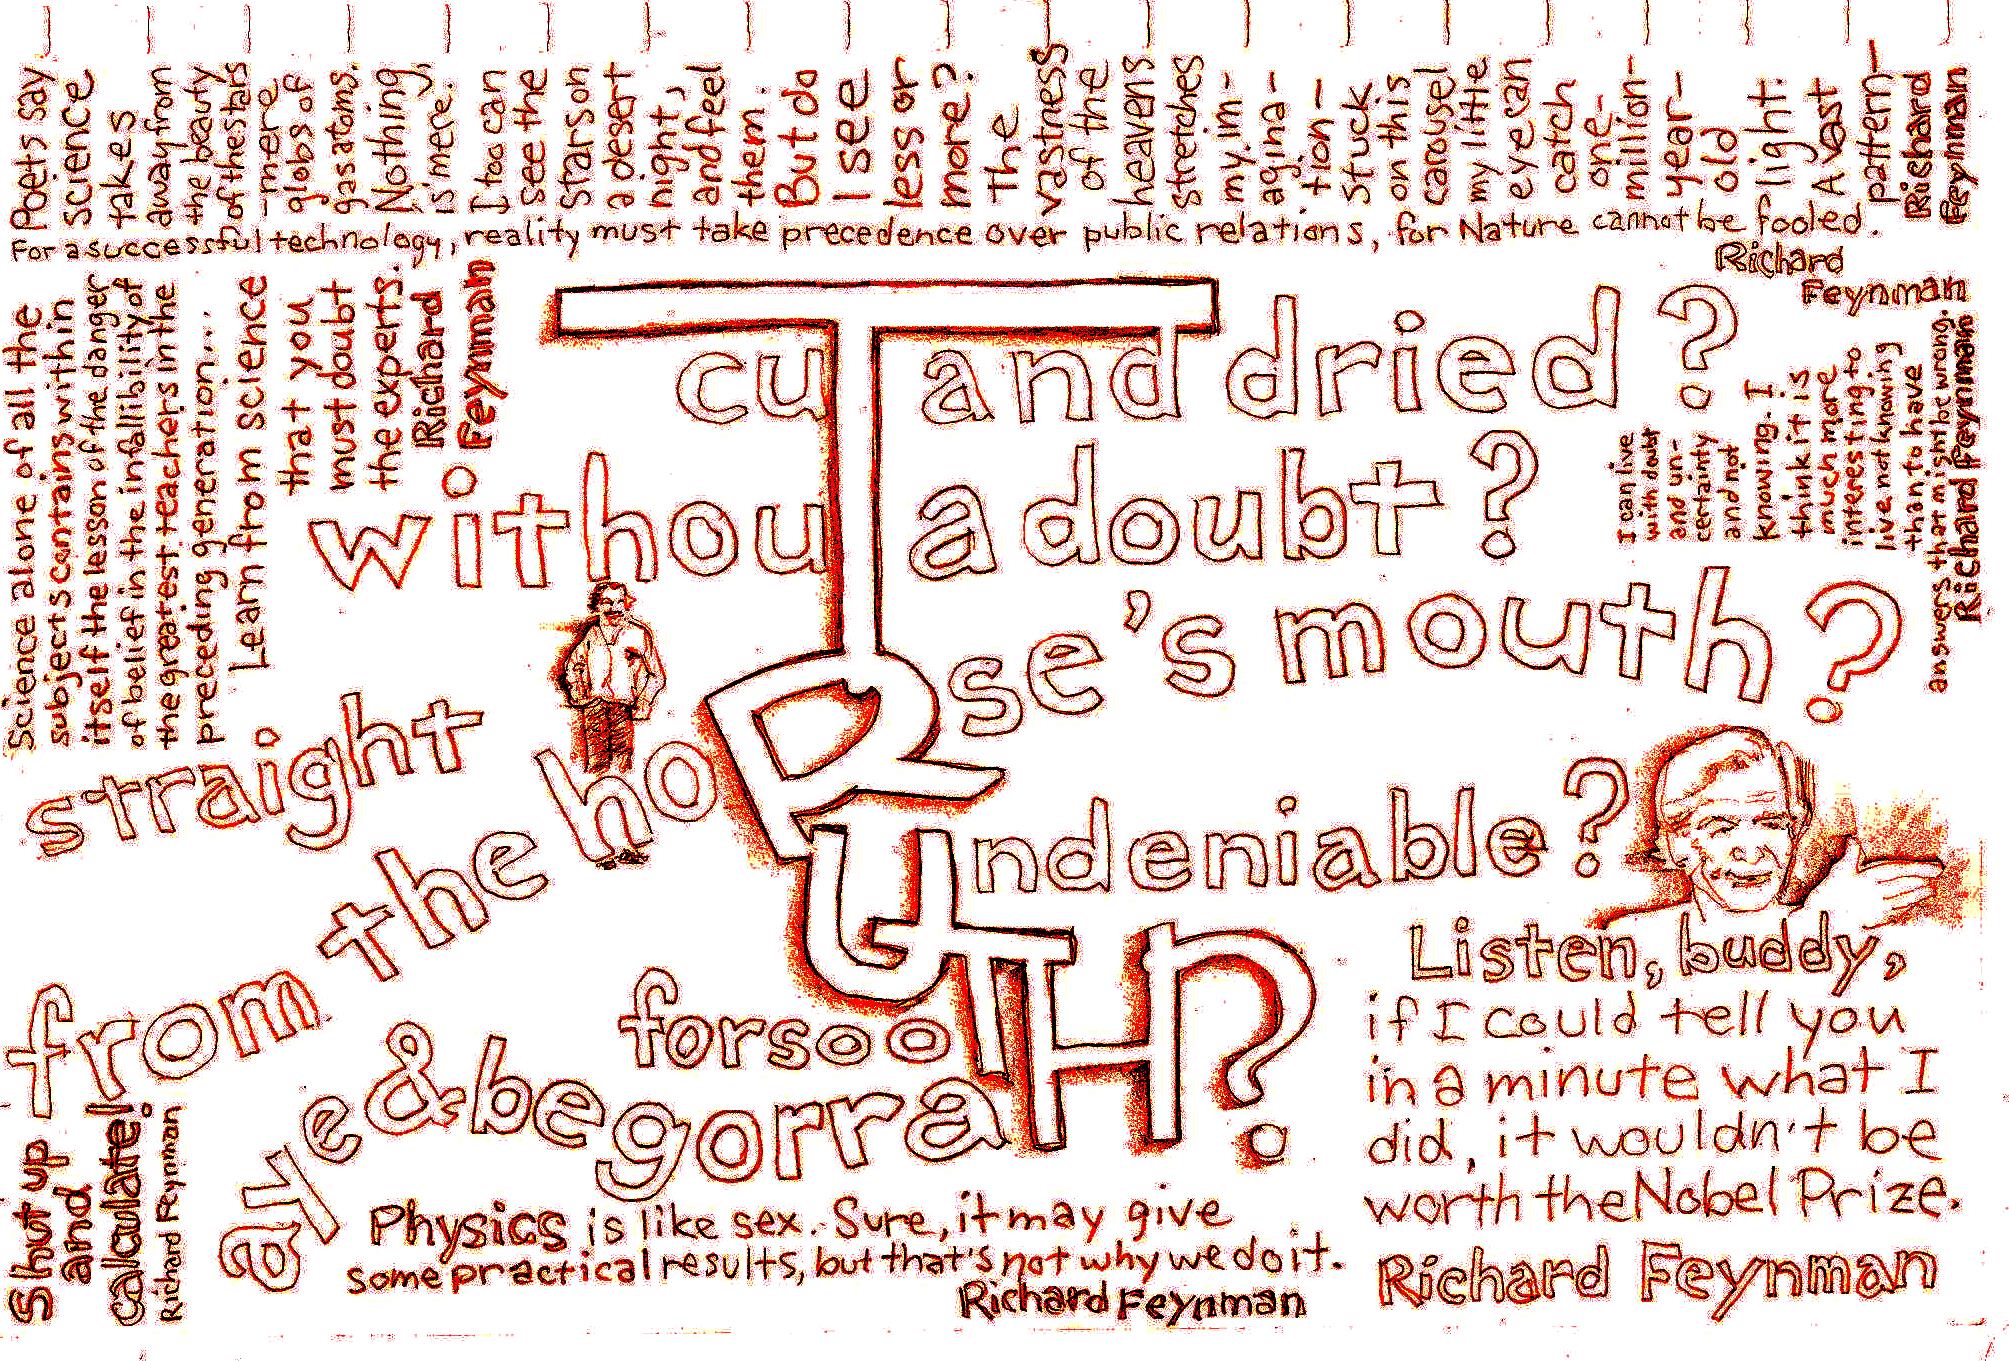 Poets say
science
takes
away from
the beauty
of the stars
-mere
globs of
gas atoms.
Nothing
is mere.
I too can
see the
stars on
a desert
night,
and feel
them.
But do
I see
less or
more?
The
vastness
of the
heavens
stretches
my im-
agina-
tion-
stuck
on this
carousel
my little
eye can
catch
one-
million-
year-
old
light.
A vast
pattern-
Richard
Feynman
For a successful technology, reality must take precedence over public relations, for Nature cannot be fooled.
Richard
Feynman
Science alone of all the
subjects contains within
itself the lesson of the danger
of belief in the infallibility of
the greatest teachers in the
preceding generation...
Learn from science
that you
must doubt
the experts.
Richard
Feynman
cuT and dried?
withouT a doubt?
straight
from the hoRse's mouth?
Undeniable?
forsooTH?
aye & begorraH?
I can live
with doubt
and un-
certainty
and not
knowing. I
think it is
much more
interesting to
live not knowing
than to have
answers that might be wrong.
Richard Feynman
Listen, buddy,
if I could tell you
in a minute what I
did, it wouldn't be
worth the Nobel Prize.
Richard Feynman
Shut up
and
calculate!
Richard Feynman
Physics is like sex. Sure, it may give
some practical results, but that's not why we do it.
Richard Feynman